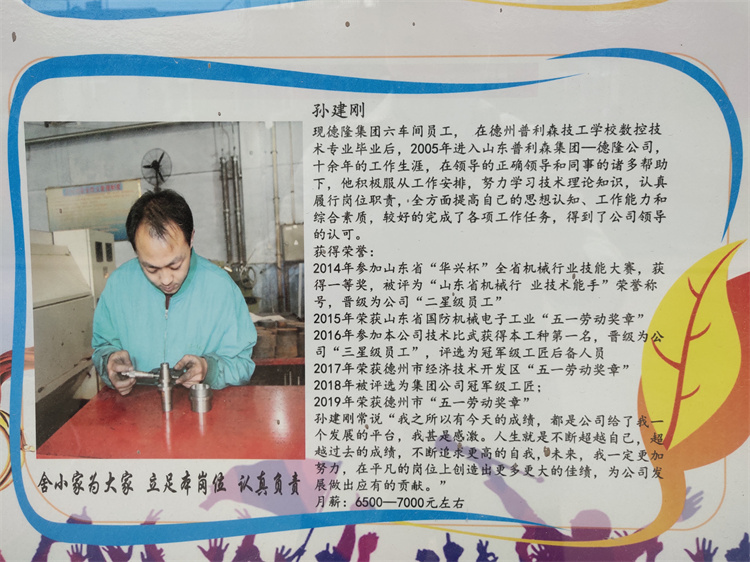 孙建刚
现德隆集团六车间员工， 在德州普利森技工学校数控技
术专业毕业后，2005年进入山东普利森集团—德隆公司，
十余年的工作生涯，在领导的正确领导和同事的诸多帮助
下，他积极服从工作安排，努力学习技术理论知识，认真
履行岗位职责，全方面提高自己的思想认知、工作能力和
综合素质，较好的完成了各项工作任务，得到了公司领导
的认可。
获得荣誉：
2014年参加山东省“华兴杯”全省机械行业技能大赛，获
得一等奖，被评为“山东省机械行 业技术能手”荣誉称
号，晋级为公司“二星级员工”
2015年荣获山东省国防机械电子工业“五一劳动奖章”
2016年参加本公司技术比武获得本工种第一名，晋级为公
司“三星级员工”，评选为冠军级工匠后备人员
2017年荣获德州市经济技术开发区“五一劳动奖章”
2018年被评选为集团公司冠军级工匠；
2019年荣获德州市“五一劳动奖章”
孙建刚常说“我之所以有今天的成绩，都是公司给了我一
个发展的平台，我甚是感激。人生就是不断超越自己，超
越过去的成绩，不断追求更高的自我，未来，我一定更加
努力，在平凡的岗位上创造出更多更大的佳绩，为公司发
展做出应有的贡献。”
月薪：6500—7000元左右
舍小家为大家 立足本岗位 认真负责